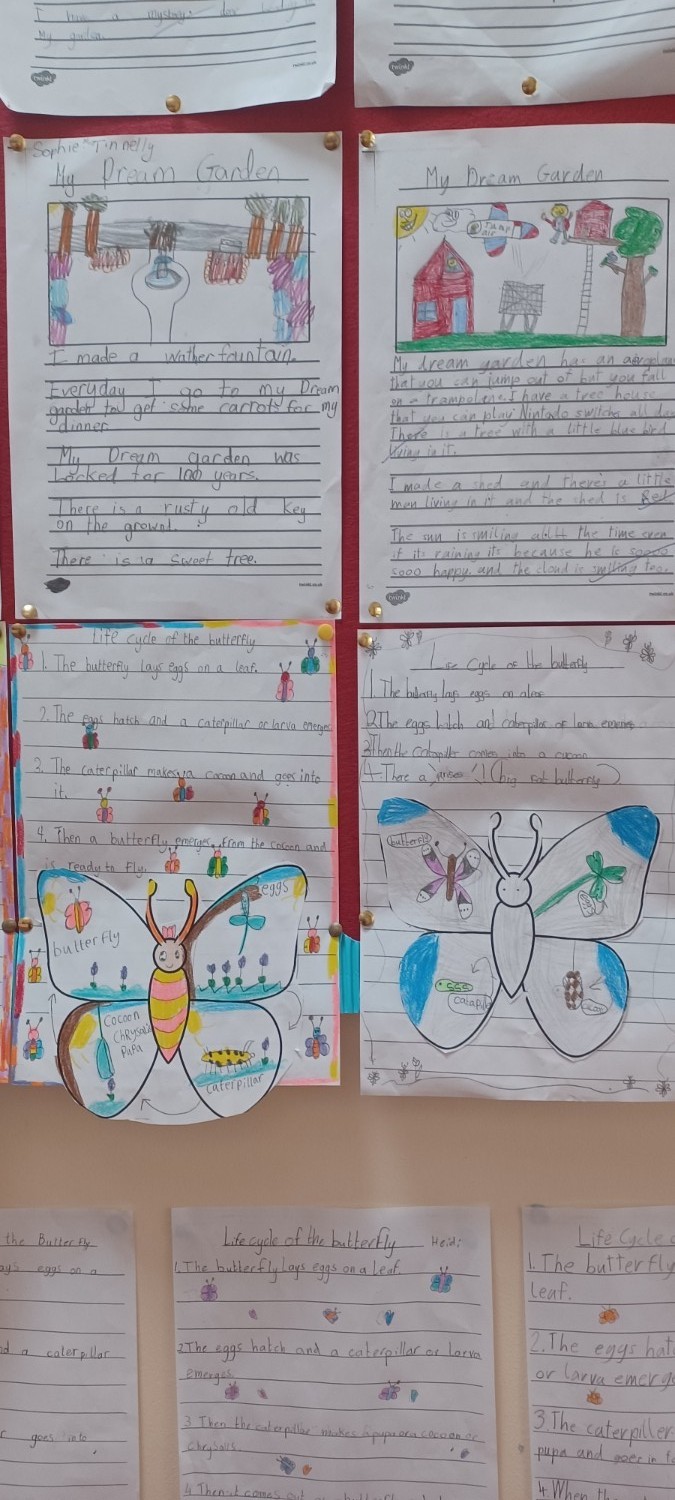 I have a mystery
My garden.
twinkl
twinkl
Sophie Tinnelly
My Dream Garden
I made a wather fountain.
Everyday I go to my Dream
garden too get some carrots for my
dinner
My Dream garden was
Locked for 100 years.
There is a rusty old key
on the ground.
There is a sweet tree.
twinkl.co.uk
My Dream Garden
Jump
air
My dream garden has an aeroplane
that you can jump out of but you fall
on a trampolene. I have a tree house
that you can play Nintendo switches all day
There is a tree with a little blue bird
living in it.
I made a shed and there's a little
man living in it and the shed is Red
The sun is smiling all the time even
if its raining its because he is soooo
sooo happy. and the cloud is smiling too.
twinkl
twinkl.co.uk
Life cycle of the butterfly
1. The butterfly lays eggs on a leaf.
2. The eggs hatch and a caterpillar or larva emerges
3. The caterpillar makes a cocoon and goes into
it.
4. Then a butterfly emerges from the cocoon and
is ready to fly.
eggs
butterfly
Cocoon
Chrysalis
Pupa
caterpillar
Life Cycle of the butterfly
1. The butterfly lays eggs on a leaf
2. The eggs hatch and caterpillar or larva emerges
3. Then the catapiller comes into a cucoon
4. There a
butterfly
eggs
catapile
the Butterfly
eggs on a
a caterpillar
goes into
Life cycle of the butterfly Heidi
1. The butterfly lays eggs on a leaf.
2. The eggs hatch and a caterpillar or larva
emerges.
3 Then the caterpillar makes a pupa or a cocoon or
chrysalis.
4 Then it comes out
Life Cycle
1. The butterfly
leaf.
2. The eggs
or larva
3. The caterpiller
pupa and goes in
4. When